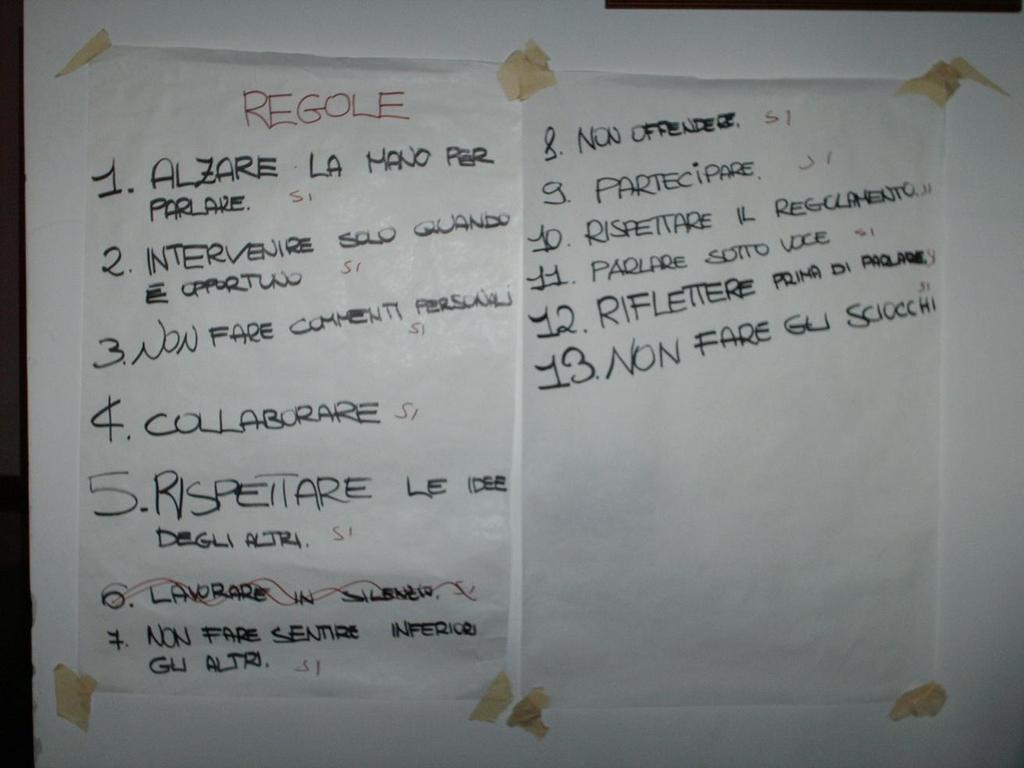 REGOLE
1. ALZARE LA MANO PER
PARLARE. SI
2. INTERVENIRE SOLO QUANDO
È OPPORTUNO SI
3. NON FARE COMMENTI PERSONALI
SI
4. COLLABORARE SI
5. RISPETTARE LE IDEE
DEGLI ALTRI. SI
6. LAVORARE IN SILENZIO. SI
7. NON FARE SENTIRE INFERIORI
GLI ALTRI. SI
8. NON OFFENDERE. SI
9. PARTECIPARE. SI
10. RISPETTARE IL REGOLAMENTO. SI
11. PARLARE SOTTO VOCE SI
12. RIFLETTERE PRIMA DI PARLARE. SI
13. NON FARE GLI SCIOCCHI SI